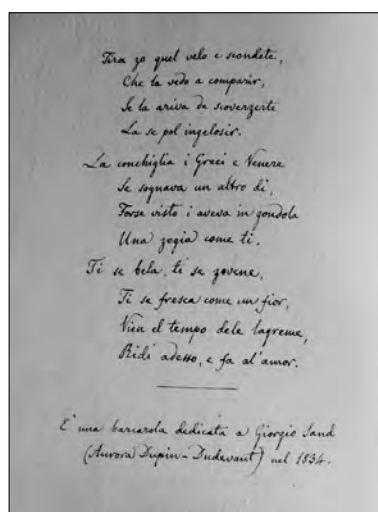 Tira zo quel velo e scondete,
Che la vedo a comparir,
Se la ariva da scoverzerte
La se pol ingelosir.
La conchiglia i Greci e Venere
Se sognava un altro di,
Forse visto i aveva in gondola
Una zogia come ti.
Ti se bela, ti se zovene,
Ti se fresca come un fior,
Vien el tempo dele lagreme,
Ridi adesso, e fa al'amor.
E' una barcarola dedicata a Giorgio Sand
(Aurora Dupin-Dudevant) nel 1834.